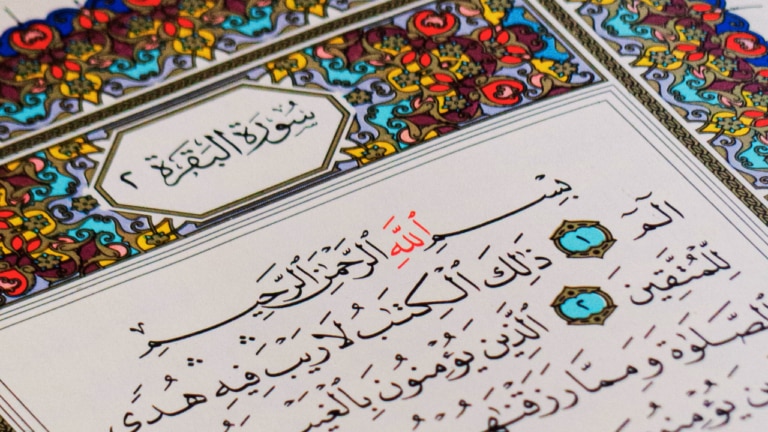 سُورَةُ البَقَرَة ٢
بِسْمِ ٱللَّهِ ٱلرَّحْمَٰنِ ٱلرَّحِيمِ
الٓمٓ ١ ذَٰلِكَ ٱلْكِتَٰبُ لَا رَيْبَ فِيهِ هُدًى
لِّلْمُتَّقِينَ ٢ ٱلَّذِينَ يُؤْمِنُونَ بِٱلْغَيْبِ
ٱلصَّلَوٰةَ وَمِمَّا رَزَقْنَٰهُمْ
يُؤْمِنُونَ